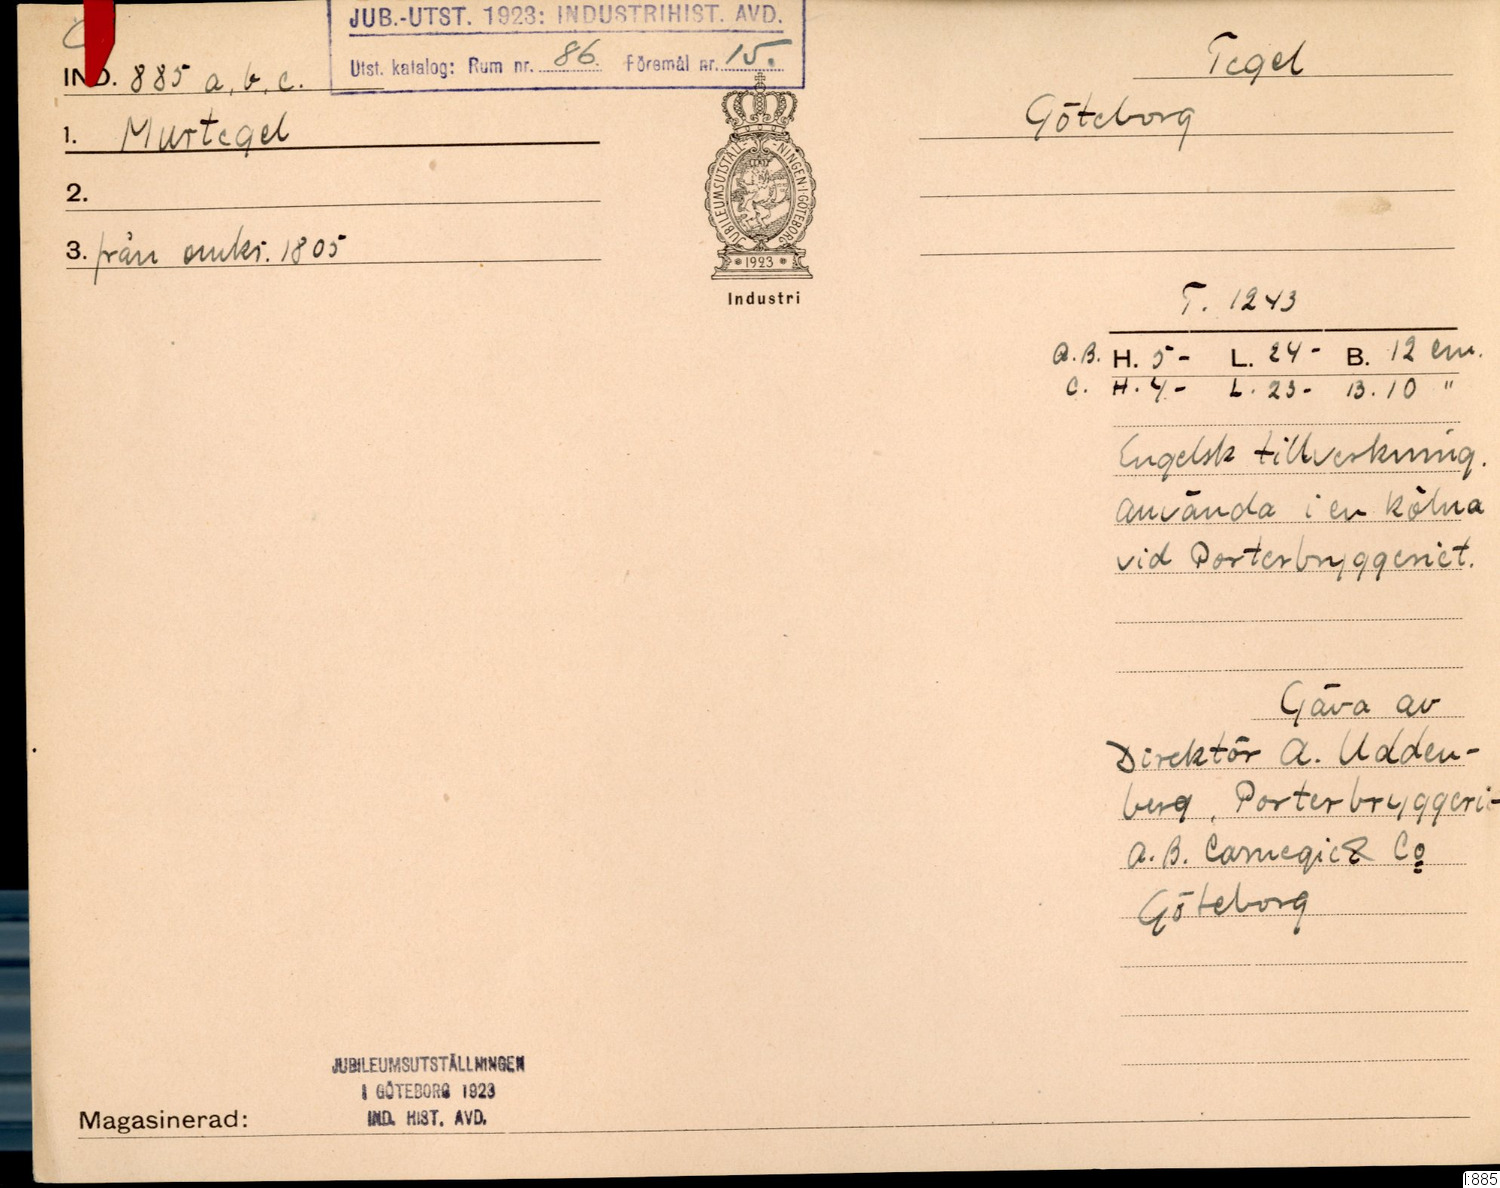 JUB.-UTST. 1923: INDUSTRIHIST. AVD.
Utst. katalog: Rum nr. 86. Föremål nr. 15.
IND. 885 a, b, c.
1. Murtegel
2.
3. från omkr. 1805
JUBILEUMSUTSTÄLLNINGEN I GÖTEBORG
1923
Industri
Tegel
Göteborg
T. 1243
a.B. H. 5- L. 24- B. 12 cm.
C. H. 4- L. 23- B. 10 "
Engelsk tillverkning.
Använda i en kölna
vid Porterbryggeriet.
Gåva av
Direktör A. Udden-
berg, Porterbryggeri-
A.B. Carnegie & Co
Göteborg
JUBILEUMSUTSTÄLLNINGEN
I GÖTEBORG 1923
IND. HIST. AVD.
Magasinerad:
1:885